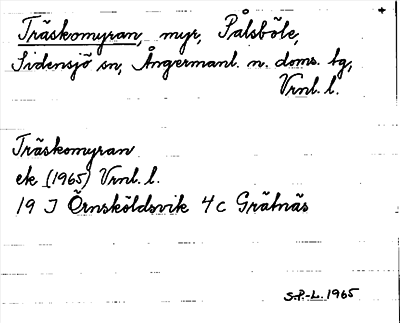 Träskomyran, myr, Pålsböle,
Sidensjö sn, Ångermanl. n. doms. bg,
Vrnl. l.
Träskomyran
ek (1965) Vrnl. l.
19 J Örnsköldsvik 4 c Grätnäs
S.P.-L. 1965